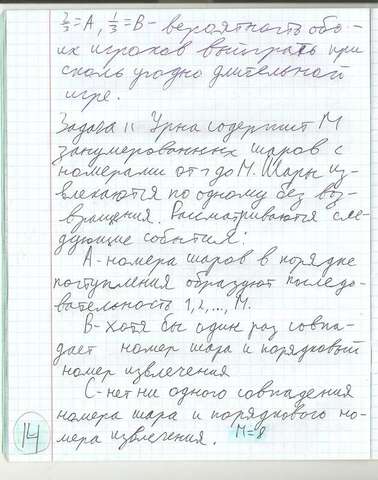 2/3 = A, 1/3 = B - вероятность обо-
их игроков выиграть при
сколь угодно длительной
игре.
Задача 11 Урна содержит M
занумерованных шаров с
номерами от 1 до M. Шары из-
влекаются по одному без воз-
вращения. Рассматриваются сле-
дующие события:
A - номера шаров в порядке
поступления образуют последо-
вательность 1,2,..., M.
B - хотя бы один раз совпа-
дает номер шара и порядковый
номер извлечения
C - нет ни одного совпадения
номера шара и порядкового но-
мера извлечения. M=8
14